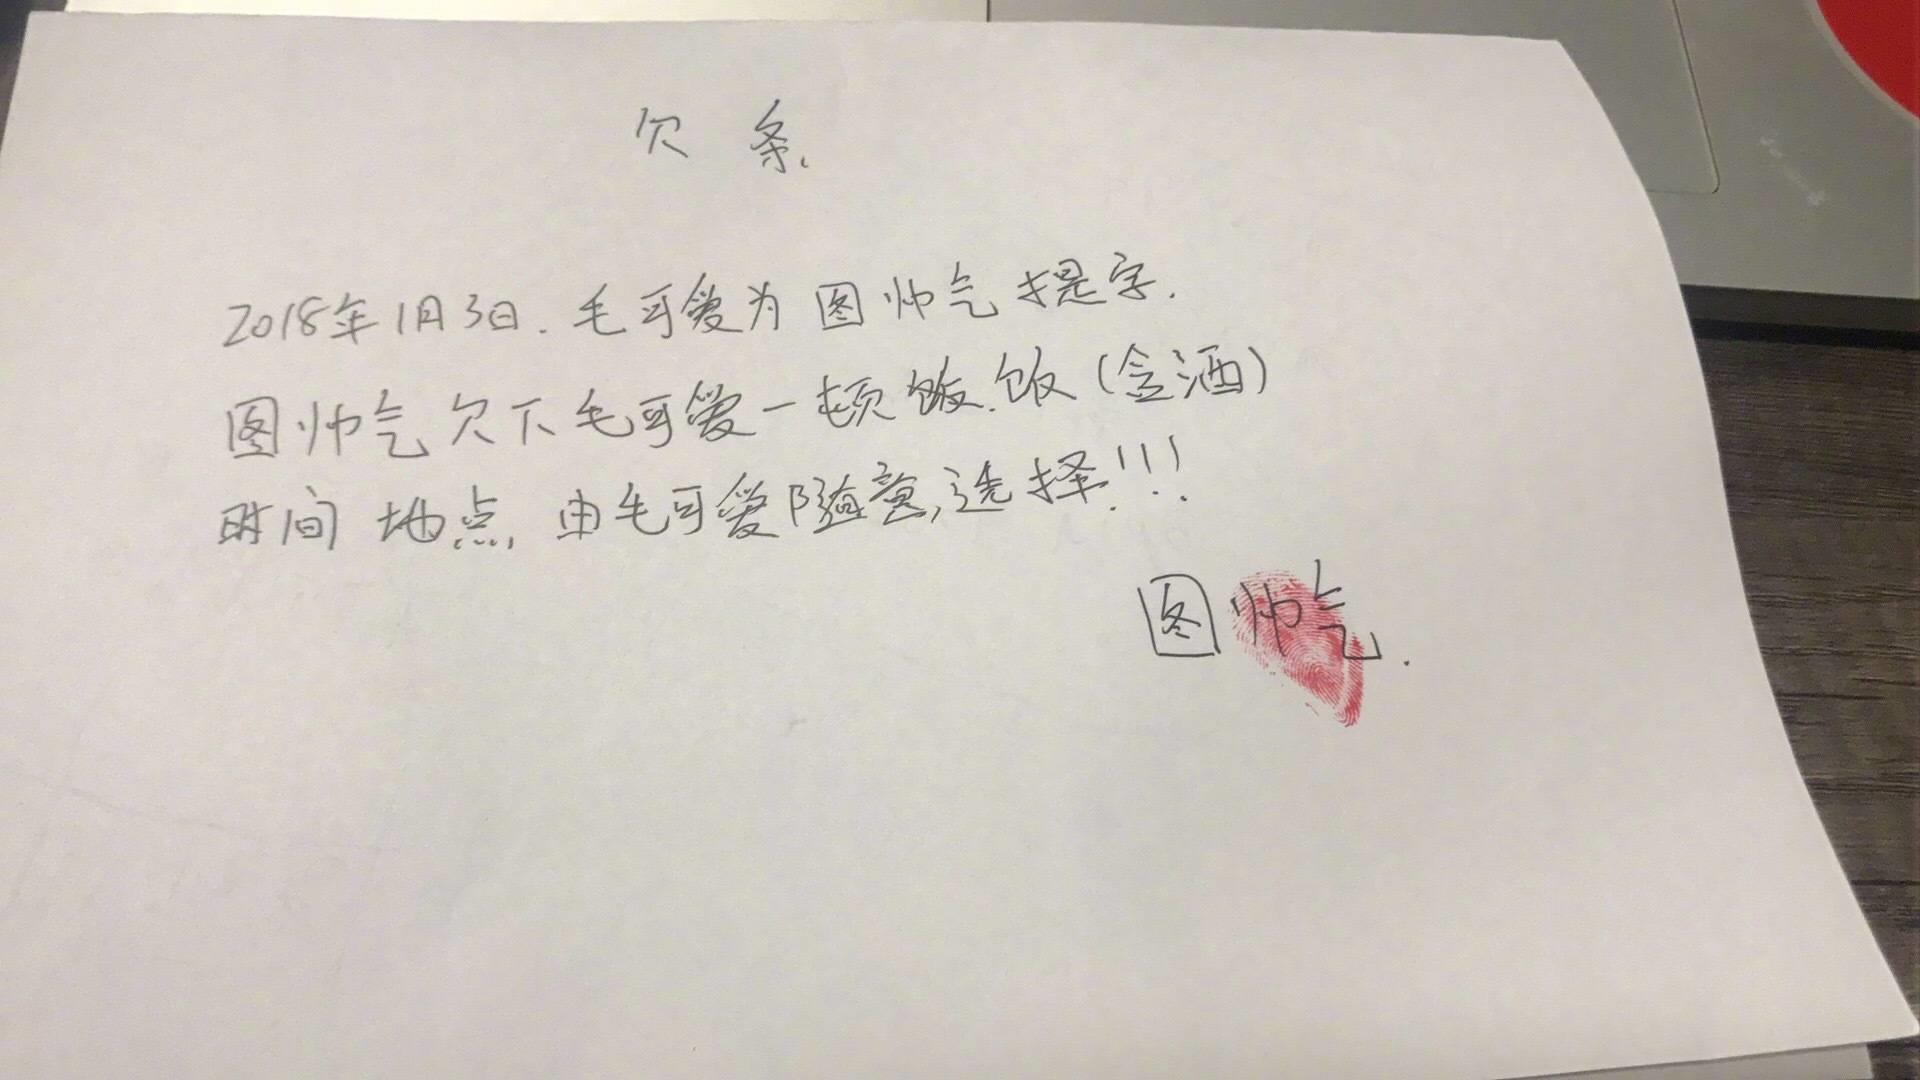 欠条.
2018年1月3日.毛可爱为图帅气提字.
图帅气欠下毛可爱一顿饭.饭(含酒)
时间地点,由毛可爱随意,选择!!!
图帅气.